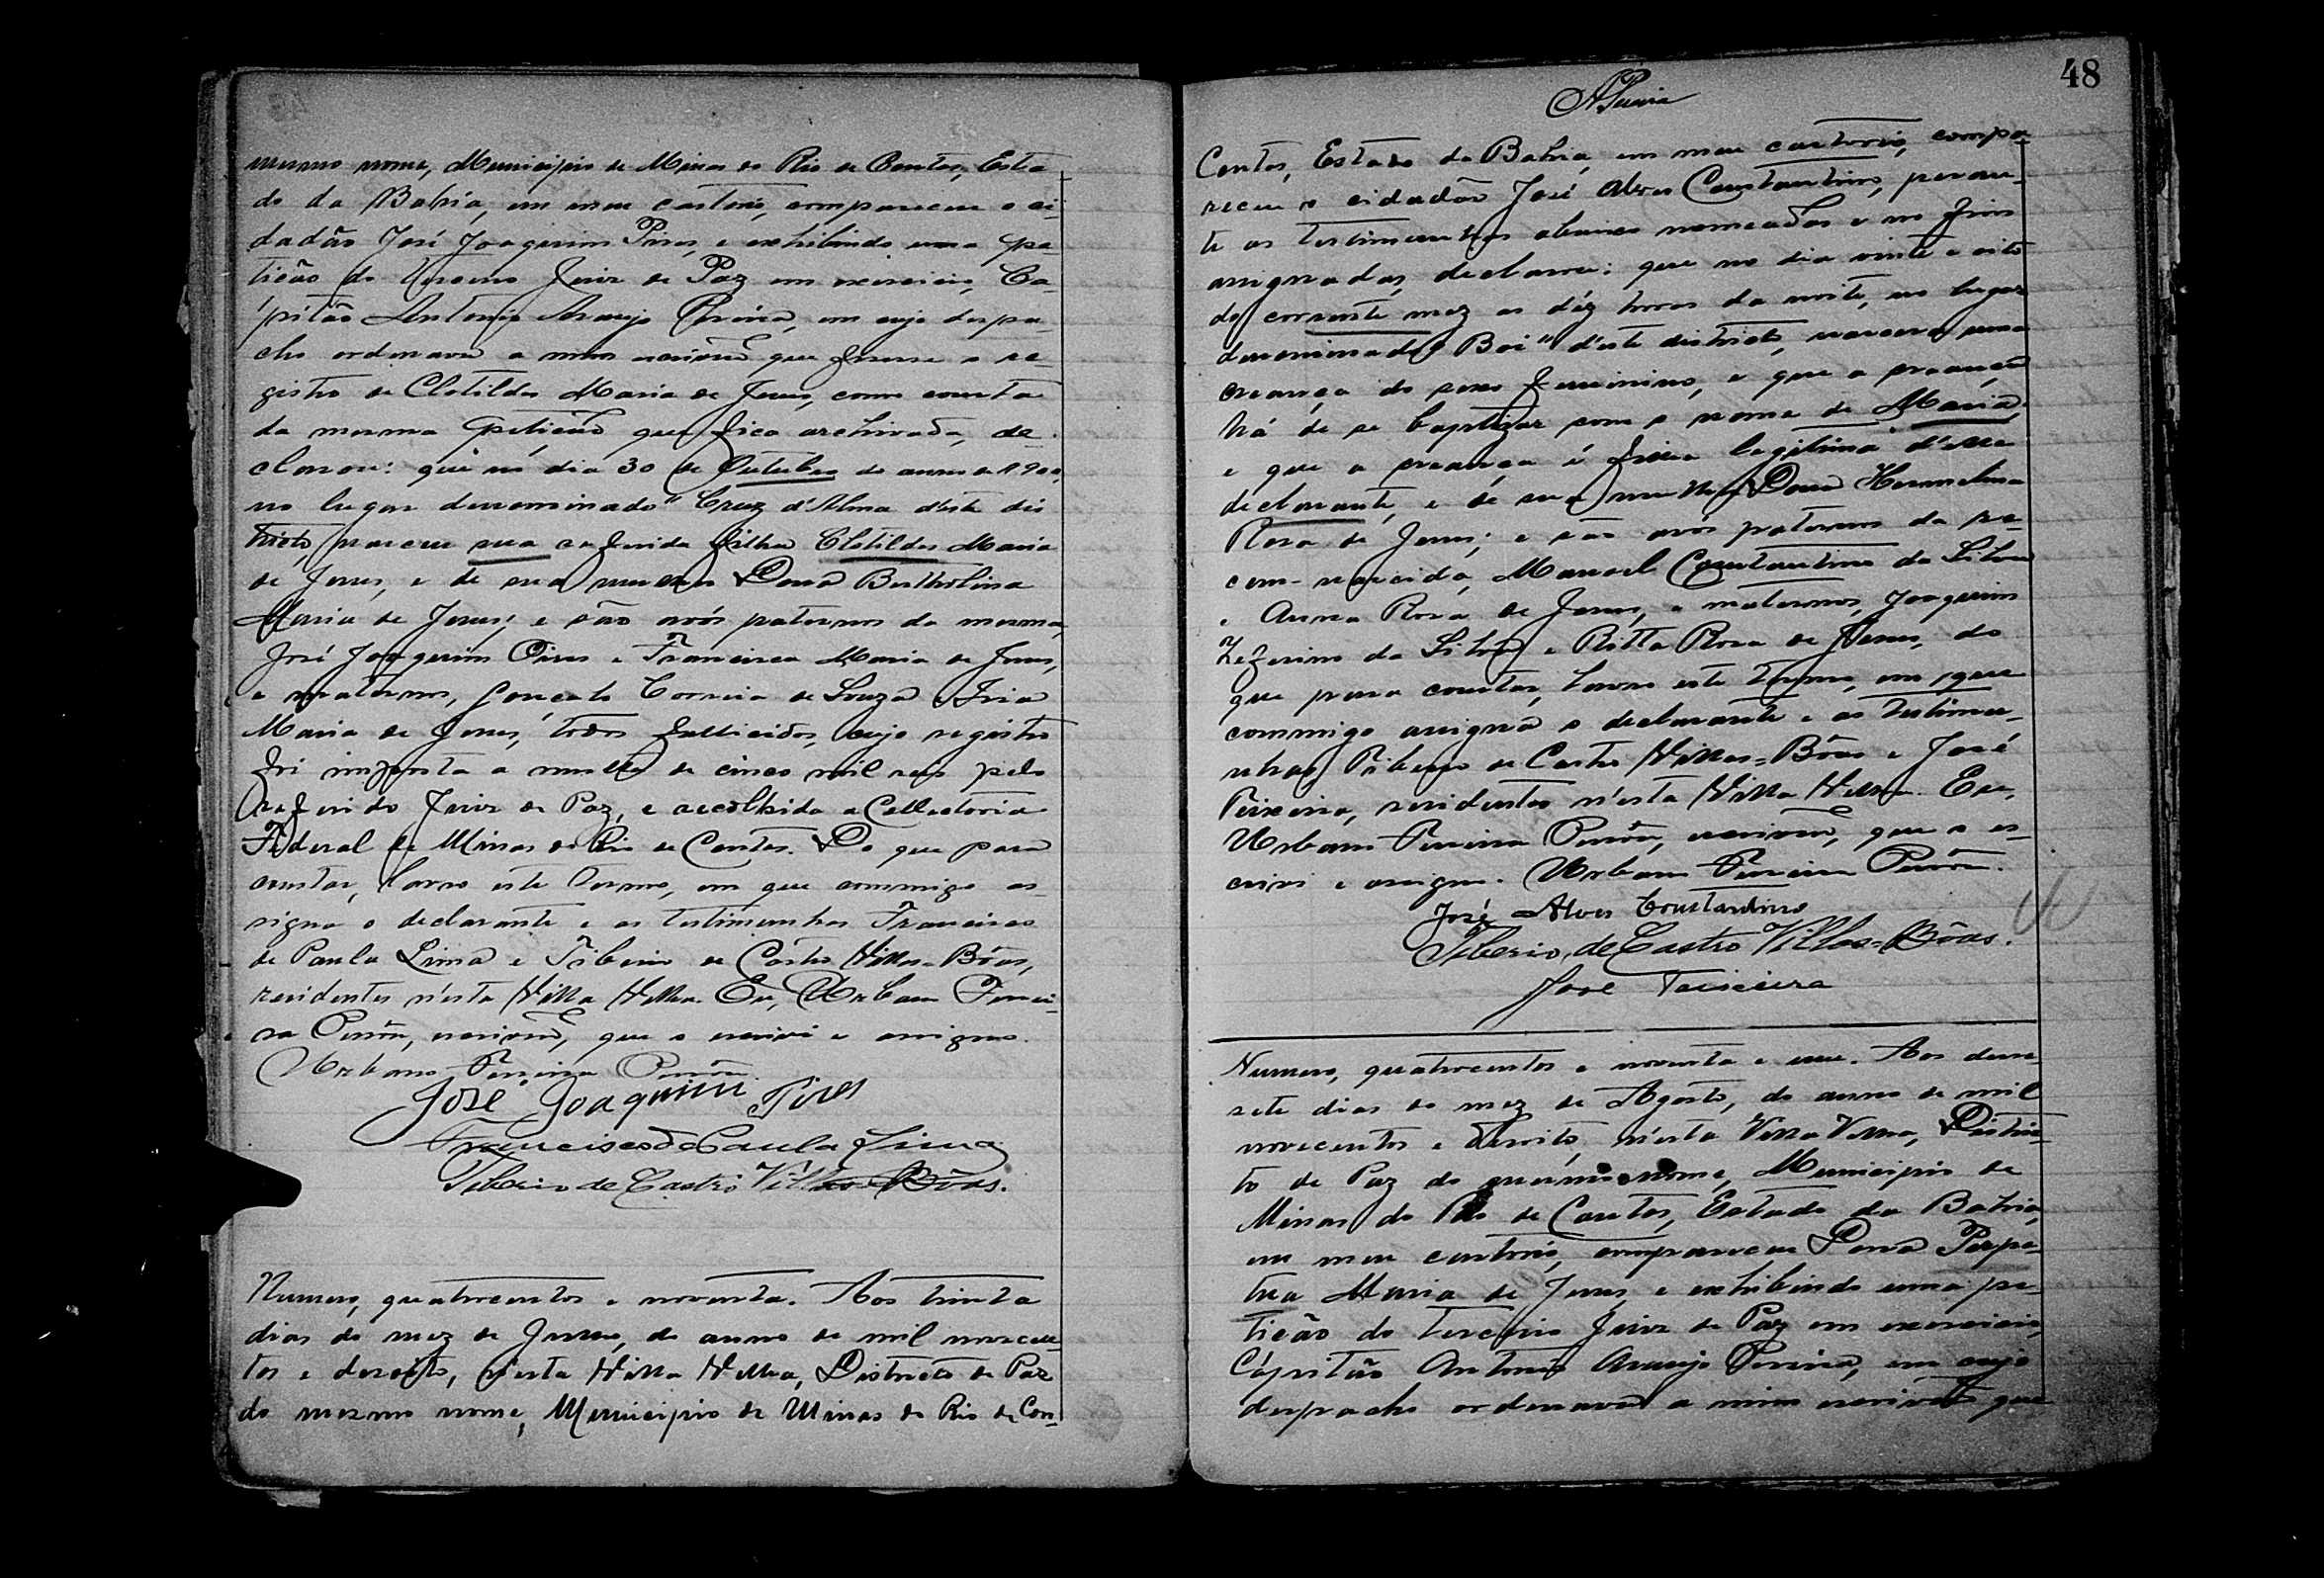 mesmo nome, Municipio de Minas do Rio de Contas, Esta
do da Bahia, em meu cartorio, compareceu o ci-
dadão José Joaquim Pires, e exhibindo uma pe-
tição do terceiro Juiz de Paz em exercicio, Ca-
pitão Antonio Araujo Pereira, em cujo despa-
cho ordenava a mim escrivão que fizesse o re-
gistro de Clotildes Maria de Jesus, como consta
da mesma petição que fica archivada, de-
clarou: que no dia 30 de Outubro do anno de 1900,
no lugar denominado "Cruz d'Alma d'este dis
tricto nasceu sua referida filha Clotildes Maria
de Jesus, e de sua mulher Dona Bertholina
Maria de Jesus; e são avós paternos da mesma,
José Joaquim Pires e Francisca Maria de Jesus,
e maternos, Gonçalo Correia de Souza e Iria
Maria de Jesus, todos fallecidos, cujo registro
foi imposta a multa de cinco mil reis pelo
referido Juiz de Paz, e recolhida a Collectoria
Federal de Minas do Rio de Contas. Do que para
constar, lavro este termo, em que commigo as-
signa o declarante e as testimunhas Francisco
de Paula Lima e Tiberio de Castro Villas-Bôas,
residentes n'esta Villa Velha. Eu, Urbano Ferrei-
ra, escrivão, que o escrivi e assigno.
Urbano Ferreira
José Joaquim Pires
Francisco de Paula Lima
Tiberio de Castro Villas-Bôas.
Numero, quatrocentos e noventa. Aos trinta
dias do mez de Junho, do anno de mil novecen-
tos e dezoito, n'esta Villa Velha, Districto de Paz
do mesmo nome, Municipio de Minas do Rio de Con-
48
Contas, Estado da Bahia, em meu cartorio, compa-
receu o cidadão José Alves Constantino, peran-
te as testimunhas abaixo nomeadas e no fim
assignadas, declarou: que no dia vinte e oito
do corrente mez as déz horas da noite, no lugar
denominado "Boi" d'este districto, nasceu uma
creança do sexo feminino, e que a creança
há de se baptizar com o nome de Maria.
e que a creança é filha legitima d'elle
declarante, e de sua mulher Dona Hermelina
Rosa de Jesus; e são avós paternos da re-
cem-nascida, Manoel Constantino da Silva
e Anna Rosa de Jesus, e maternos, Joaquim
Zeferino da Silva e Ritta Rosa de Jesus, do
que para constar, lavro este termo, em que
commigo assigna o declarante e as testimu-
nhas Tiberio de Castro Villas-Bôas e José
Teixeira, residentes n'esta Villa Velha. Eu,
Urbano Ferreira, escrivão, que o es-
crivi e assigno. Urbano Ferreira
José Alves Constantino
Tiberio de Castro Villas-Bôas.
Jose Teixeira
Numero, quatrocentos e noventa e um. Aos deze
sete dias do mez de Agosto, do anno de mil
novecentos e dezoito, n'esta Villa Velha, Distric-
to de Paz do mesmo nome, Municipio de
Minas do Rio de Contas, Estado da Bahia,
em meu cartorio, compareceu Dona Perpe-
tua Maria de Jesus, e exhibindo uma pe-
tição do terceiro Juiz de Paz em exercicio,
Cápitão Antonio Araujo Pereira, em cujo
despacho ordenava a mim escrivão que